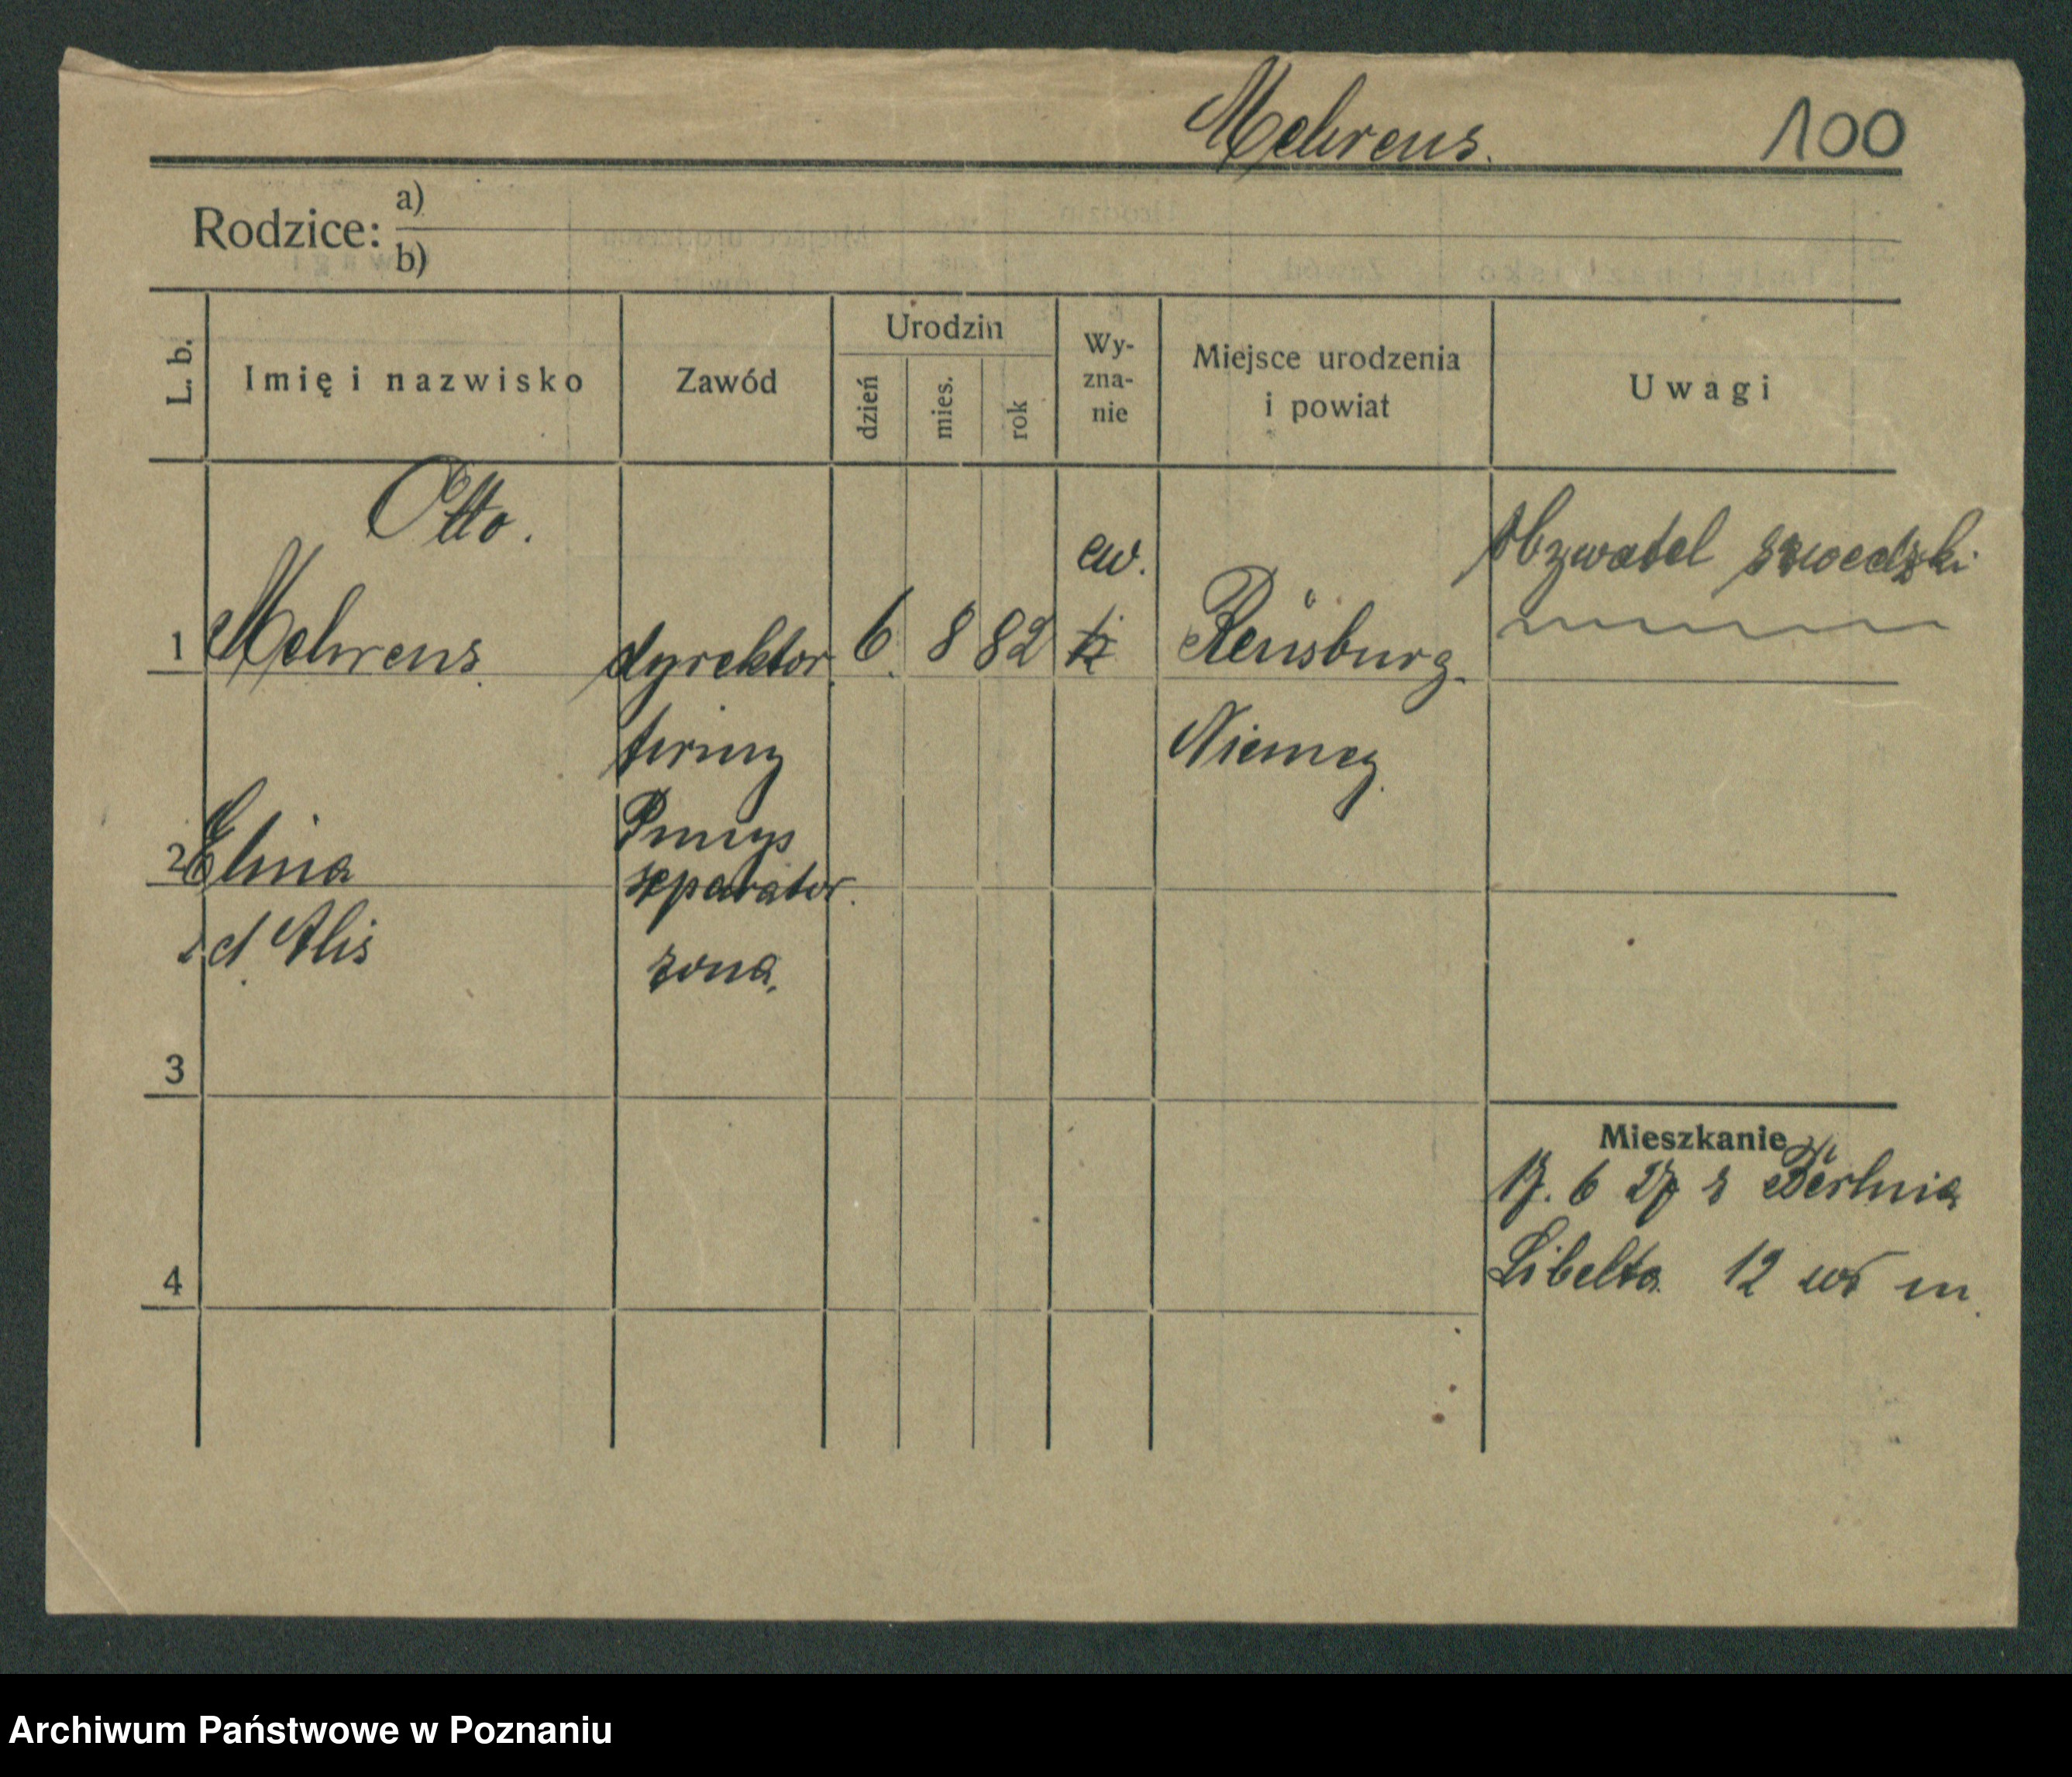 Mehrens. 100
Rodzice: a)
b)
L. b.
Imię i nazwisko
Zawód
Urodzin
dzień
mies.
rok
Wy-
zna-
nie
Miejsce urodzenia
i powiat
Uwagi
Otto.
ew.
Obywatel szwedzki
1 Mehrens. dyrektor 6. 8 82 Rensburg.
firmy Niemcy.
2 Elma
separator.
d'Alis żona.
3
4
Mieszkanie
17. 6 27 z Berlina
Libelta 12 m
Archiwum Państwowe w Poznaniu